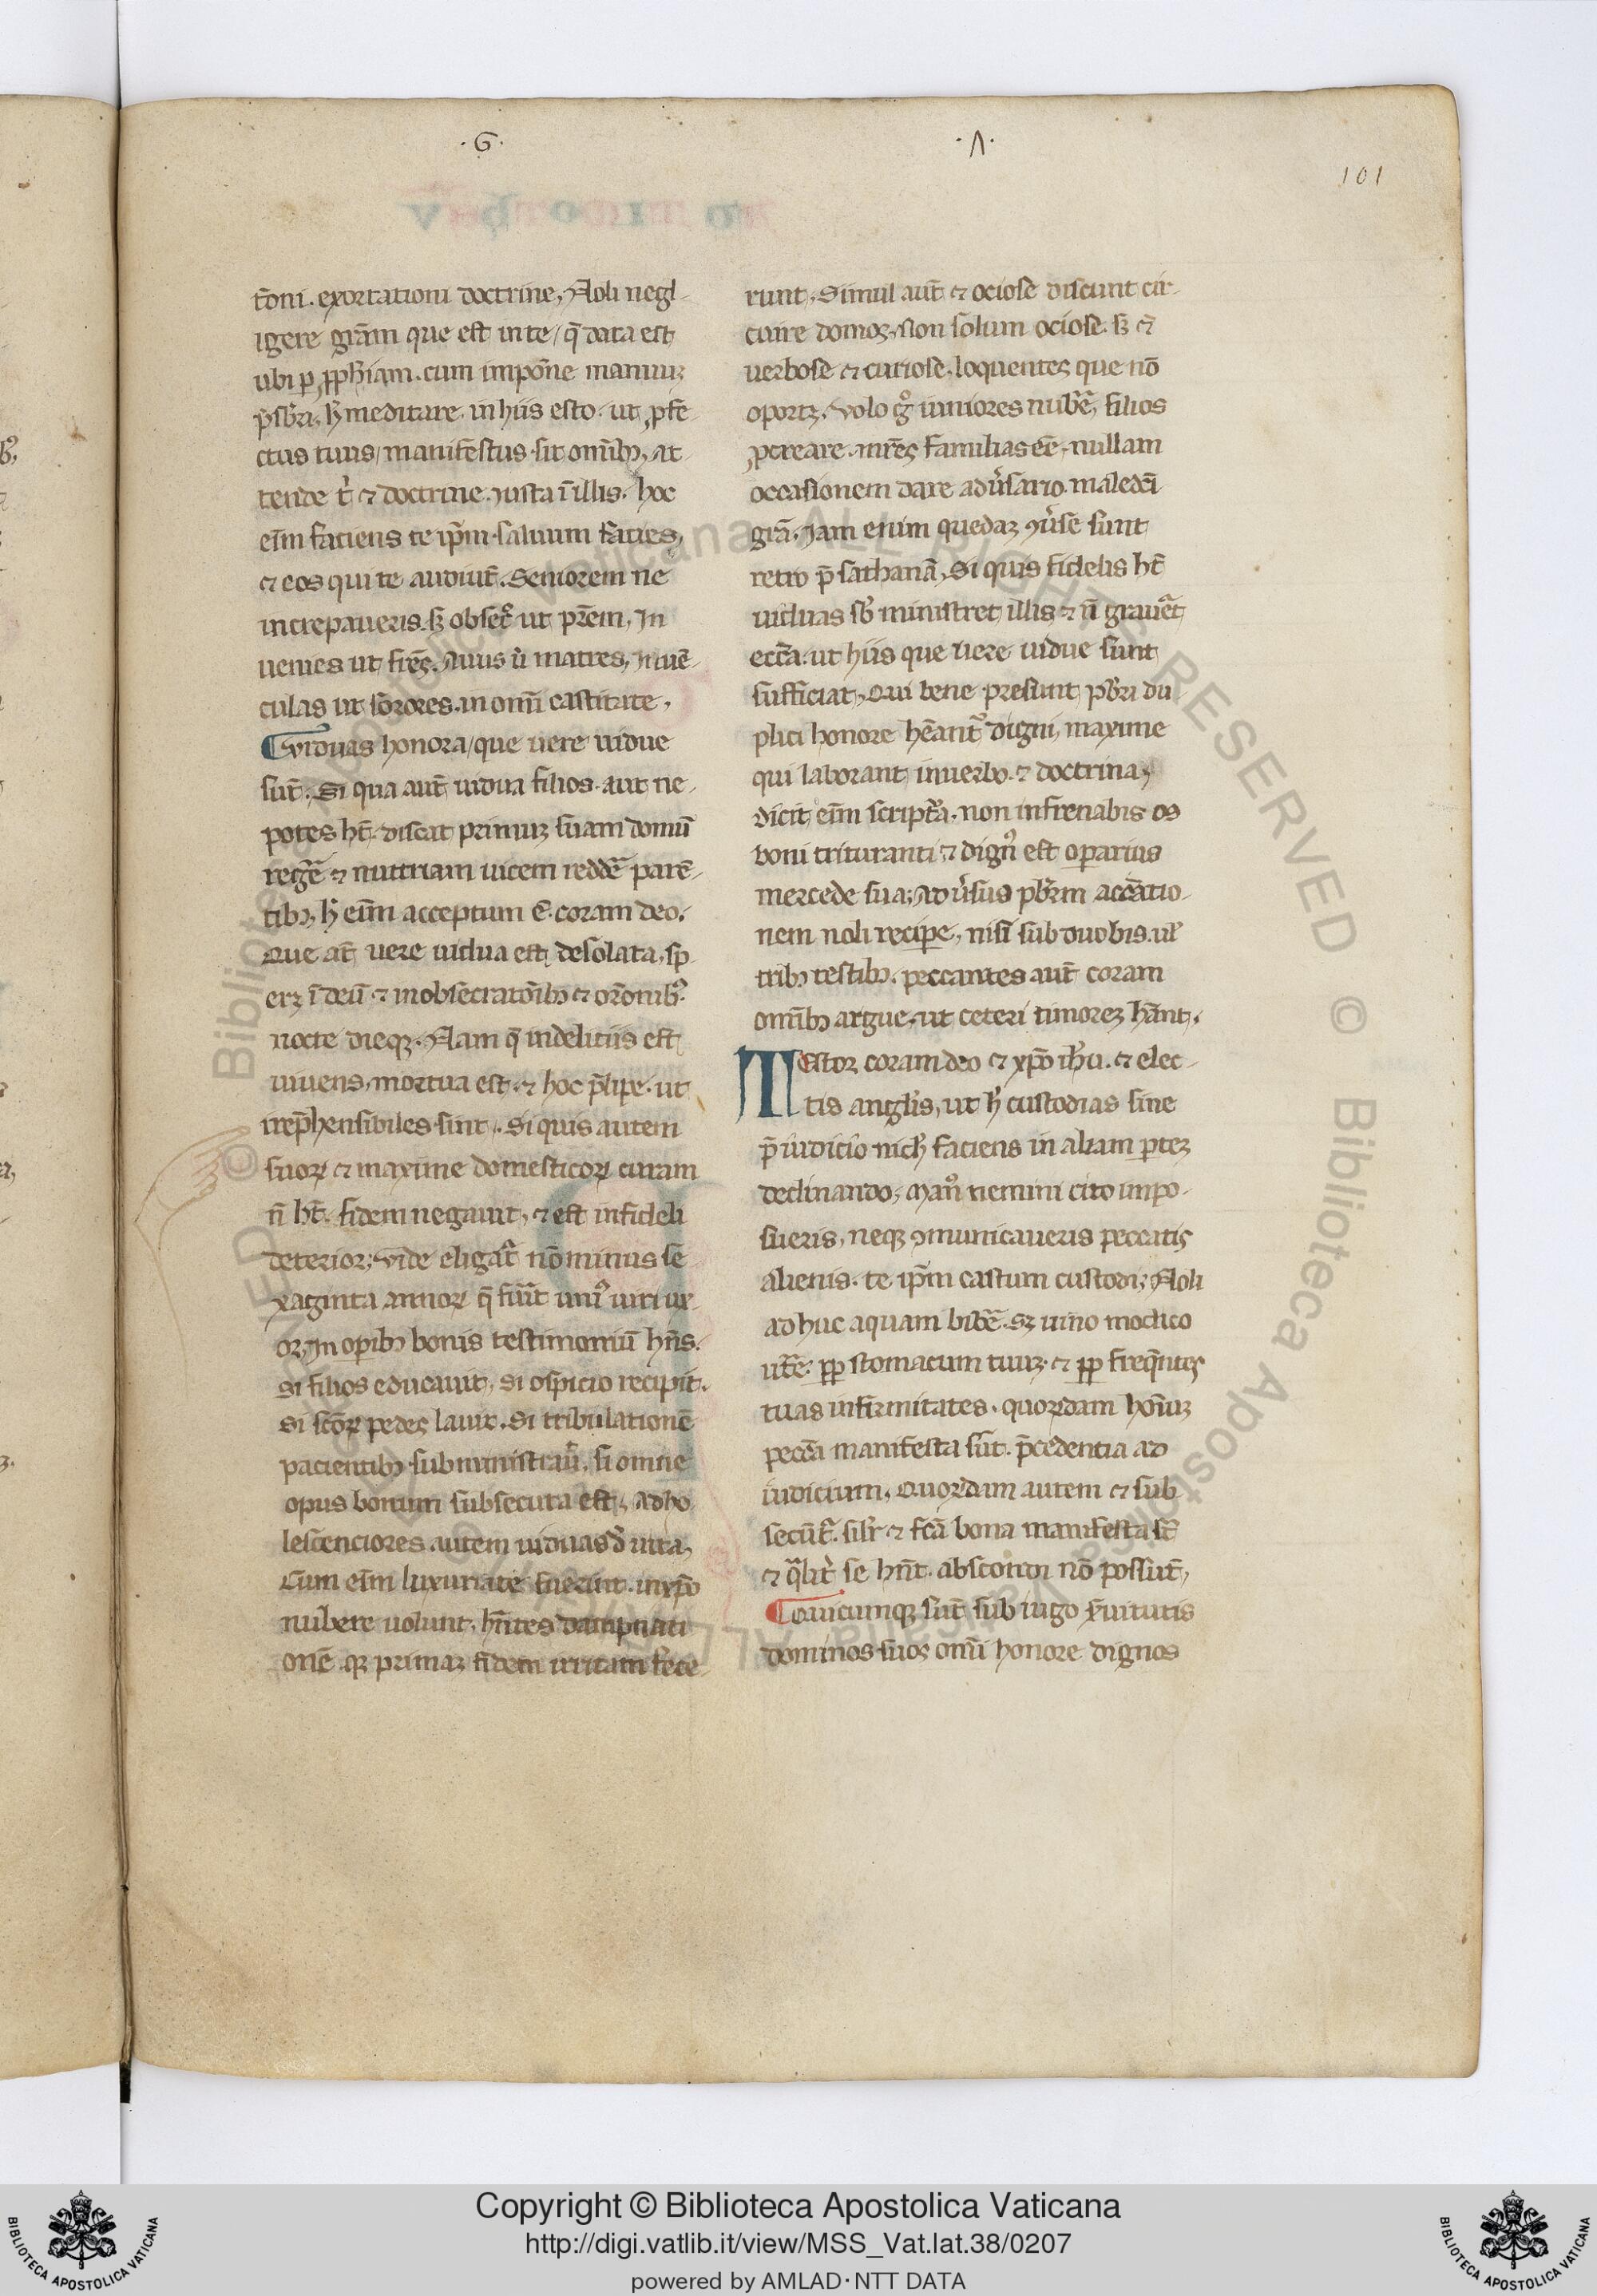 .G.
.Λ.
101
t̄oni. exortationi doctrine, Noli negl-
igere grām que est in te/ q̄ data est
ubi ꝑ ꝓph̄iam. cum impōne manuuꝫ
p̄sbr̄i, h̄ meditare. in hiis esto. ut ꝓfe-
ctus tuus/ manifestus sit om̄ibꝫ, At-
tende t̓ ⁊ doctrine. insta ī illis. hoc
eīm faciens te ip̄m saluum facies,
⁊ eos qui te audiūt. Seniorem ne
increpaueris. sꝫ obsec̄ ut pr̄em, Iu-
uenes ut fr̄es. Anus ū matres, Iuuē-
culas ut sorores. in om̄i castitate.
Viduas honora/ que uere uidue
sūt. Si qua aūt uidua filios. aut ne-
potes ht̄. discat primuꝫ suam domū
reḡe ⁊ muttuam uicem redd̄e parē-
tibꝫ, h̄ eīm acceptum ē. coram deo.
Que at̄ uere uidua est desolata, sp-
erꝫ ī deū ⁊ in obsecratōibꝫ ⁊ or̄onibꝰ
nocte dieqꝫ. Nam q̄ in delitiis est
uiuens, mortua est. ⁊ hoc p̄cipe. ut
irrep̄hensibiles sint. Si quis autem
suoꝝ ⁊ maxime domesticoꝝ curam
n̄ ht̄. fidem negauit, ⁊ est infideli
deterior; Vide eligat̄ nō minus se-
xaginta annoꝝ q̄ fūīt uniꝰ uiri ux-
or, In oꝑibꝫ bonis testimoniū hn̄s.
Si filios educauit, si ospicio recipit.
Si sc̄oꝝ pedes lauit. Si tribulationē
pacientibꝫ subministrauı̄. si omne
opus bonum subsecuta est, adho-
lescenciores autem uiduas d̓ uita,
Cum eīm luxuriate fuerint. in xp̄o
nubere uolunt, hn̄tes dampnati-
onē. qꝫ primaꝫ fidem irritam fece-
runt, Simul aūt ⁊ ociose discunt cir-
cuire domos, Non solum ociose. sꝫ ⁊
uerbose ⁊ curiose. loquentes que nō
oportꝫ. Volo gͦ iuniores nub̄e, filios
ꝓcreare. mr̄es familias eē. nullam
occasionem dare adūsario. maledc̄i
grā. Iam enim quedaꝫ ꝯūse sunt
retro p̄ sathanā, Si quis fidelis ht̄
uiduas sb̄ministret illis ⁊ n̄ grauet̄
ecc̄a. ut hiis que uere uidue sunt
sufficiat, Qui bene presunt pb̄ri du-
plici honore hēant̄ digni, maxime
qui laborant in uerbo. ⁊ doctrina,
Dicit eīm scripta. non infrenabis os
boui trituranti ⁊ dignꝰ est operarius
mercede sua; Adūsus pb̄rm accātio-
nem noli recipe, nisi sub duobis. ul̄
tribꝫ testibꝫ. peccantes aūt coram
om̄ibꝫ argue. ut ceteri timoreꝫ hānt.
TEstor coram deo ⁊ xp̄o ih̄u. ⁊ elec-
tis angl̄is, ut h̄ custodias sine
p̄iudicio nich̄ faciens in aliam ꝑteꝫ
declinando; Manꝰ nemini cito impo-
sueris, neqꝫ ꝯmunicaueris peccatis
alienis. te ip̄m castum custodi; Noli
adhuc aquam bib̄e. sꝫ uino modico
ut̄e. ꝓp stomacum tuuꝫ. ⁊ ꝓp freq̄ntes
tuas infirmitates. quorꝫdam hoīuꝫ
pecc̄a manifesta sūt. p̄cedentia ad
iudicium, Quorꝫdam autem ⁊ sub-
secūt̄. sil̄r ⁊ fc̄a bona manifesta st̄
⁊ q̄ alit̄ se hn̄t. abscondi nō possūt,
Quicumqꝫ sūt sub iugo s̄uitutis
dominos suos om̄i honore dignos
Copyright © Biblioteca Apostolica Vaticana
http://digi.vatlib.it/view/MSS_Vat.lat.38/0207
powered by AMLAD·NTT DATA
BIBLIOTECA APOSTOLICA VATICANA
BIBLIOTECA APOSTOLICA VATICANA